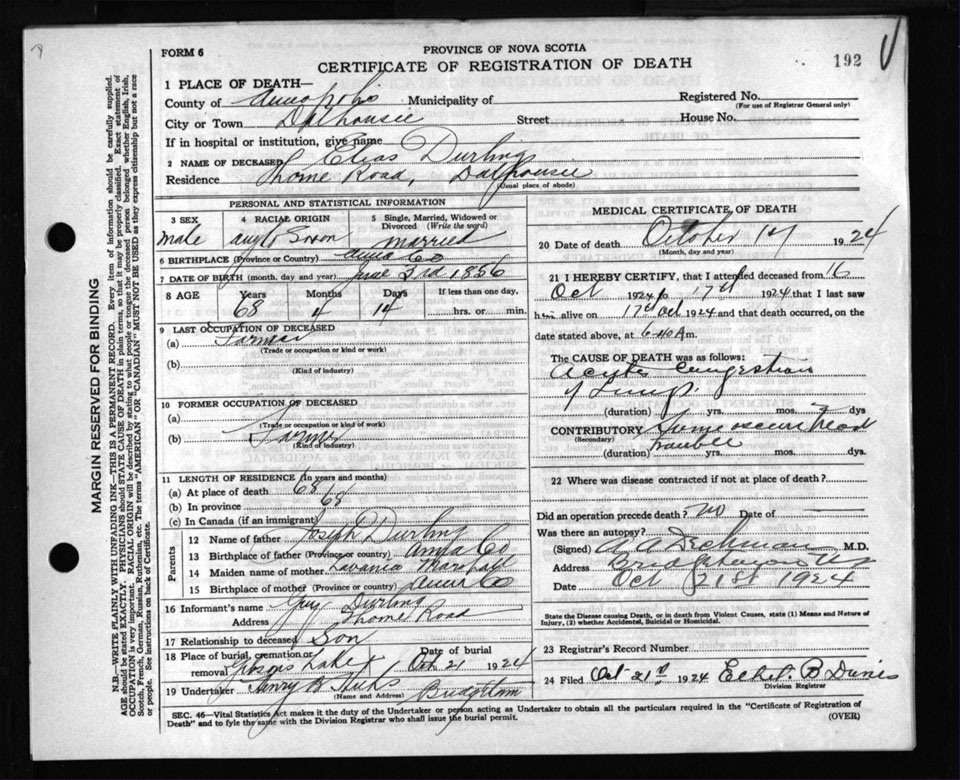 FORM 6
PROVINCE OF NOVA SCOTIA
CERTIFICATE OF REGISTRATION OF DEATH
192
1 PLACE OF DEATH—
County of Annapolis Municipality of
Registered No.
(For use of Registrar General only)
City or Town Dalhousie Street House No.
If in hospital or institution, give name
2 NAME OF DECEASED Elias Durling
Residence Thorne Road, Dalhousie
(Usual place of abode)
PERSONAL AND STATISTICAL INFORMATION
3 SEX
male
4 RACIAL ORIGIN
anglo Soxon
5 Single, Married, Widowed or Divorced (Write the word)
married
6 BIRTHPLACE (Province or Country) Anna Co
7 DATE OF BIRTH (month, day and year) June 3rd 1856
8 AGE Years Months Days If less than one day,
68 4 14 hrs. or min.
9 LAST OCCUPATION OF DECEASED
(a) Farmer
(Trade or occupation or kind or work)
(b)
(Kind of industry)
10 FORMER OCCUPATION OF DECEASED
(a)
(Trade or occupation or kind of work)
(b) Farmer
(Kind of industry)
11 LENGTH OF RESIDENCE (In years and months)
(a) At place of death 68
(b) In province 68
(c) In Canada (if an immigrant)
Parents
12 Name of father Joseph Durling
13 Birthplace of father (Province or country) Anna Co
14 Maiden name of mother Lavania Marshall
15 Birthplace of mother (Province or country) Anna Co
16 Informant's name Guy Durling
Address Thorne Road
17 Relationship to deceased Son
18 Place of burial, cremation or removal Gibsons Lake Date of burial Oct 21 1924
19 Undertaker Henry B Hicks Bridgetown
(Name and Address)
MEDICAL CERTIFICATE OF DEATH
20 Date of death October 17 1924
(Month, day and year)
21 I HEREBY CERTIFY, that I attended deceased from 16
Oct 1924 to 17th 1924 that I last saw
him alive on 17th Oct 1924 and that death occurred, on
date stated above, at 6-40 A m.
The CAUSE OF DEATH was as follows:
Acute Congestion
of Lungs
(duration) yrs. mos. 2 dys
CONTRIBUTORY Some obscure Head
(Secondary) trouble
(duration) yrs. mos. dys.
22 Where was disease contracted if not at place of death?
Did an operation precede death? no Date of
Was there an autopsy?
(Signed) A A Dechman M.D.
Address Bridgetown NS
Date Oct 21st 1924
State the Disease causing Death, or in death from Violent Causes, state (1) Means and Nature of Injury, (2) whether Accidental, Suicidal or Homicidal.
23 Registrar's Record Number
24 Filed Oct 21st 1924 Ethel B
Division Registrar
SEC. 46—Vital Statistics Act makes it the duty of the Undertaker or person acting as Undertaker to obtain all the particulars required in the "Certificate of Registration of
Death" and to fyle the same with the Division Registrar who shall issue the burial permit.
(OVER)
MARGIN RESERVED FOR BINDING
N.B.—WRITE PLAINLY WITH UNFADING INK—THIS IS A PERMANENT RECORD. Every item of information should be carefully supplied.
AGE should be stated EXACTLY. PHYSICIANS should STATE CAUSE OF DEATH in plain terms, so that it may be properly classified. Exact statement of
OCCUPATION is very important. RACIAL ORIGIN will be described by stating to what people or tongue the deceased person belonged whether English, Irish,
Scotch, French, German, Russian, Ruthenian, etc. The terms "AMERICAN" OR "CANADIAN" MUST NOT BE USED as they express citizenship but not a race
or people. See instructions on back of Certificate.